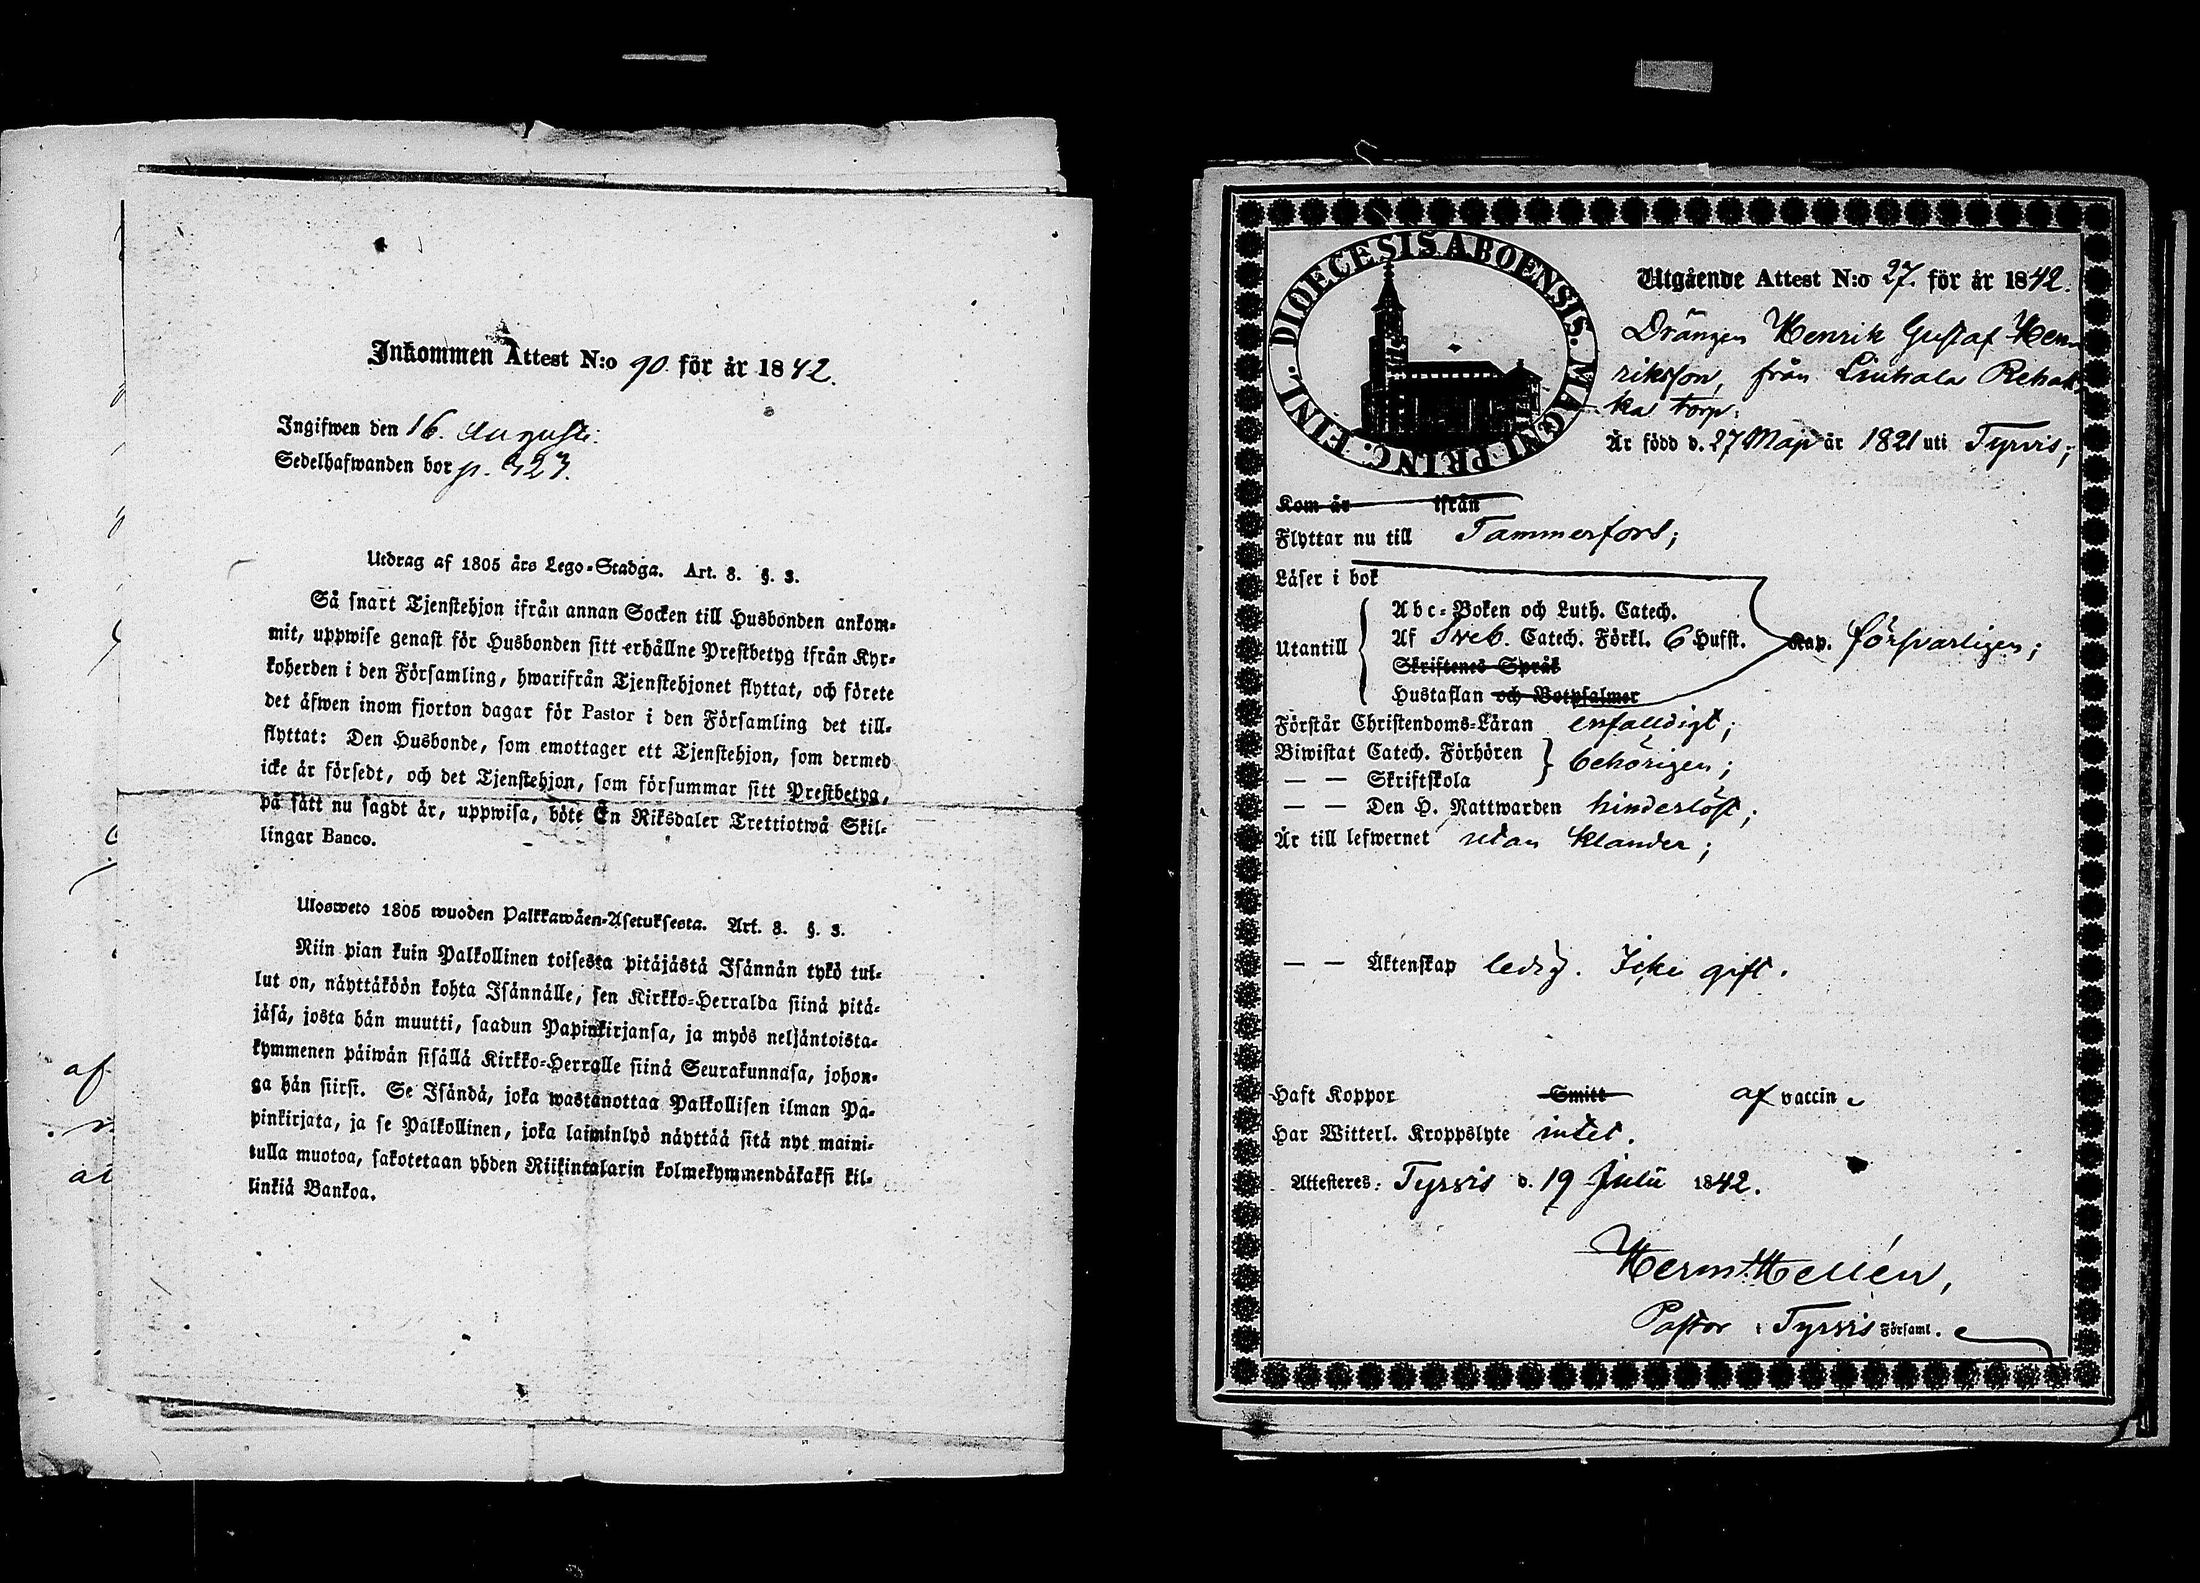 Inkommen Attest N:o 90 för år 1842.
Ingifwen den 16. Augusti.
Sedelhafwanden bor p. 323.
Utdrag af 1805 års Lego-Stadga. Art. 8. §. 3.
Så snart Tjenstehjon ifrån annan Socken till Husbonden ankom-
mit, uppwise genast för Husbonden sitt erhållne Prestbetyg ifrån Kyr-
koherden i den Församling, hwarifrån Tjenstehjonet flyttat, och förete
det äfwen inom fjorton dagar för Pastor i den Församling det till-
flyttat: Den Husbonde, som emottager ett Tjenstehjon, som dermed
icke är försedt, och det Tjenstehjon, som försummar sitt Prestbetyg,
på sätt nu sagdt är, uppwisa, böte En Riksdaler Trettiotwå Skil-
lingar Banco.
Ulosweto 1805 wuoden Palkkawäen-Asetuksesta. Art. 8. §. 3.
Niin pian kuin Palkollinen toisesta pitäjästä Isännän tykö tul-
lut on, näyttäköön kohta Isännälle, sen Kirkko-Herralda siinä pitä-
jäsä, josta hän muutti, saadun Papinkirjansa, ja myös neljäntoista-
kymmenen päiwän sisällä Kirkko-Herralle siinä Seurakunnasa, johon-
ga hän siirsi. Se Isändä, joka wastanottaa Palkollisen ilman Pa-
pinkirjata, ja se Palkollinen, joka laiminlyö näyttää sitä nyt maini-
tulla muotoa, sakotetaan yhden Riikintalarin kolmekymmendäkaksi kil-
linkiä Bankoa.
af
DIOECESIS ABOENSIS. MAGNI PRINC. FINL.
Utgående Attest N:o 27. för år 1842.
Drängen Henrik Gustaf Hen-
riksson, från Liuhala Rehak-
ka torp:
Är född d. 27 Maji år 1821 uti Tyrvis;
Kom år ifrån
Flyttar nu till Tammerfors;
Läser i bok
Abc-Boken och Luth. Catech.
Utantill Af Sveb. Catech. Förkl. 6 Hufst. Kap. försvarligen;
Skriftenes Språk
Hustaflan och Botpsalmer
Förstår Christendoms-Läran enfalldigt;
Biwistat Catech. Förhören behörigen;
— — Skriftskola
— — Den H. Nattwarden hinderlöst;
Är till lefwernet utan klander;
— — Äktenskap ledig. Icke gift.
Haft Koppor Smitt af vaccine
Har Witterl. Kroppslyte intet.
Attesteres: Tyrvis d. 19 Julii 1842.
Herm: Hellén,
Pastor i Tyrvis Församl.